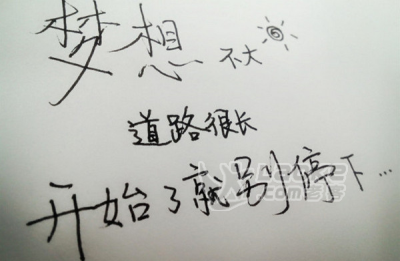 梦想不大
道路很长
开始了就别停下...